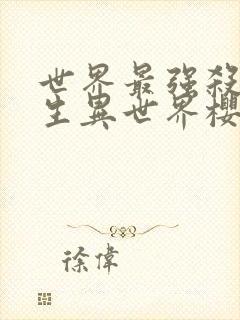 世界最強殺
生異世界櫻
徐偉